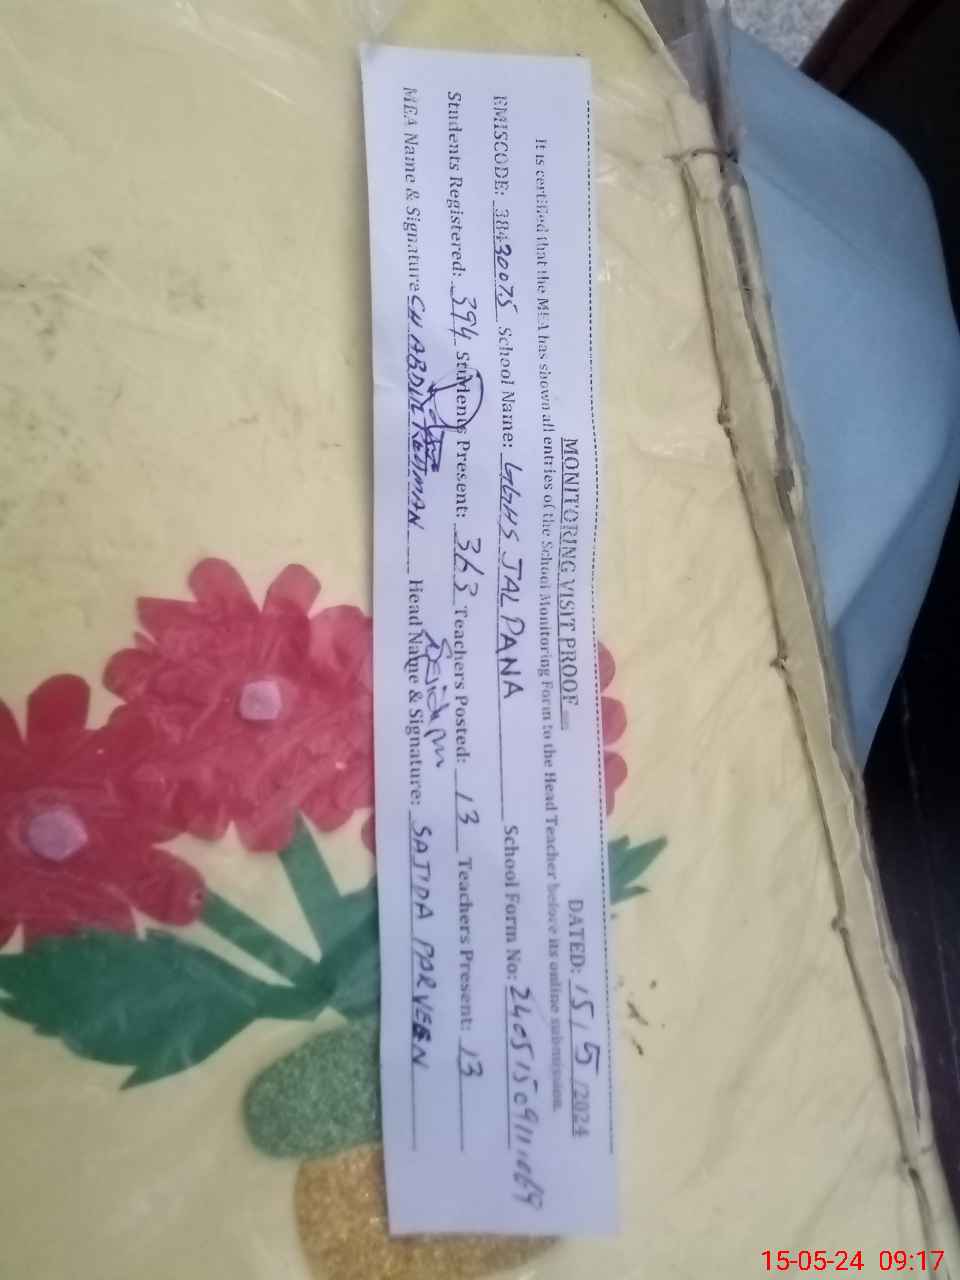 MONITORING VISIT PROOF
DATED: 15/5/2024
It is certified that the MEA has shown all entries of the School Monitoring Form to the Head Teacher before its online submission.
EMISCODE: 38430075 School Name: GGHS JALPANA School Form No:
Students Registered: 394 Students Present: 363 Teachers Posted: 13 Teachers Present: 13
MEA Name & Signature CH ABDUL REHMAN Head Name & Signature: SAJIDA PARVEEN
15-05-24 09:17